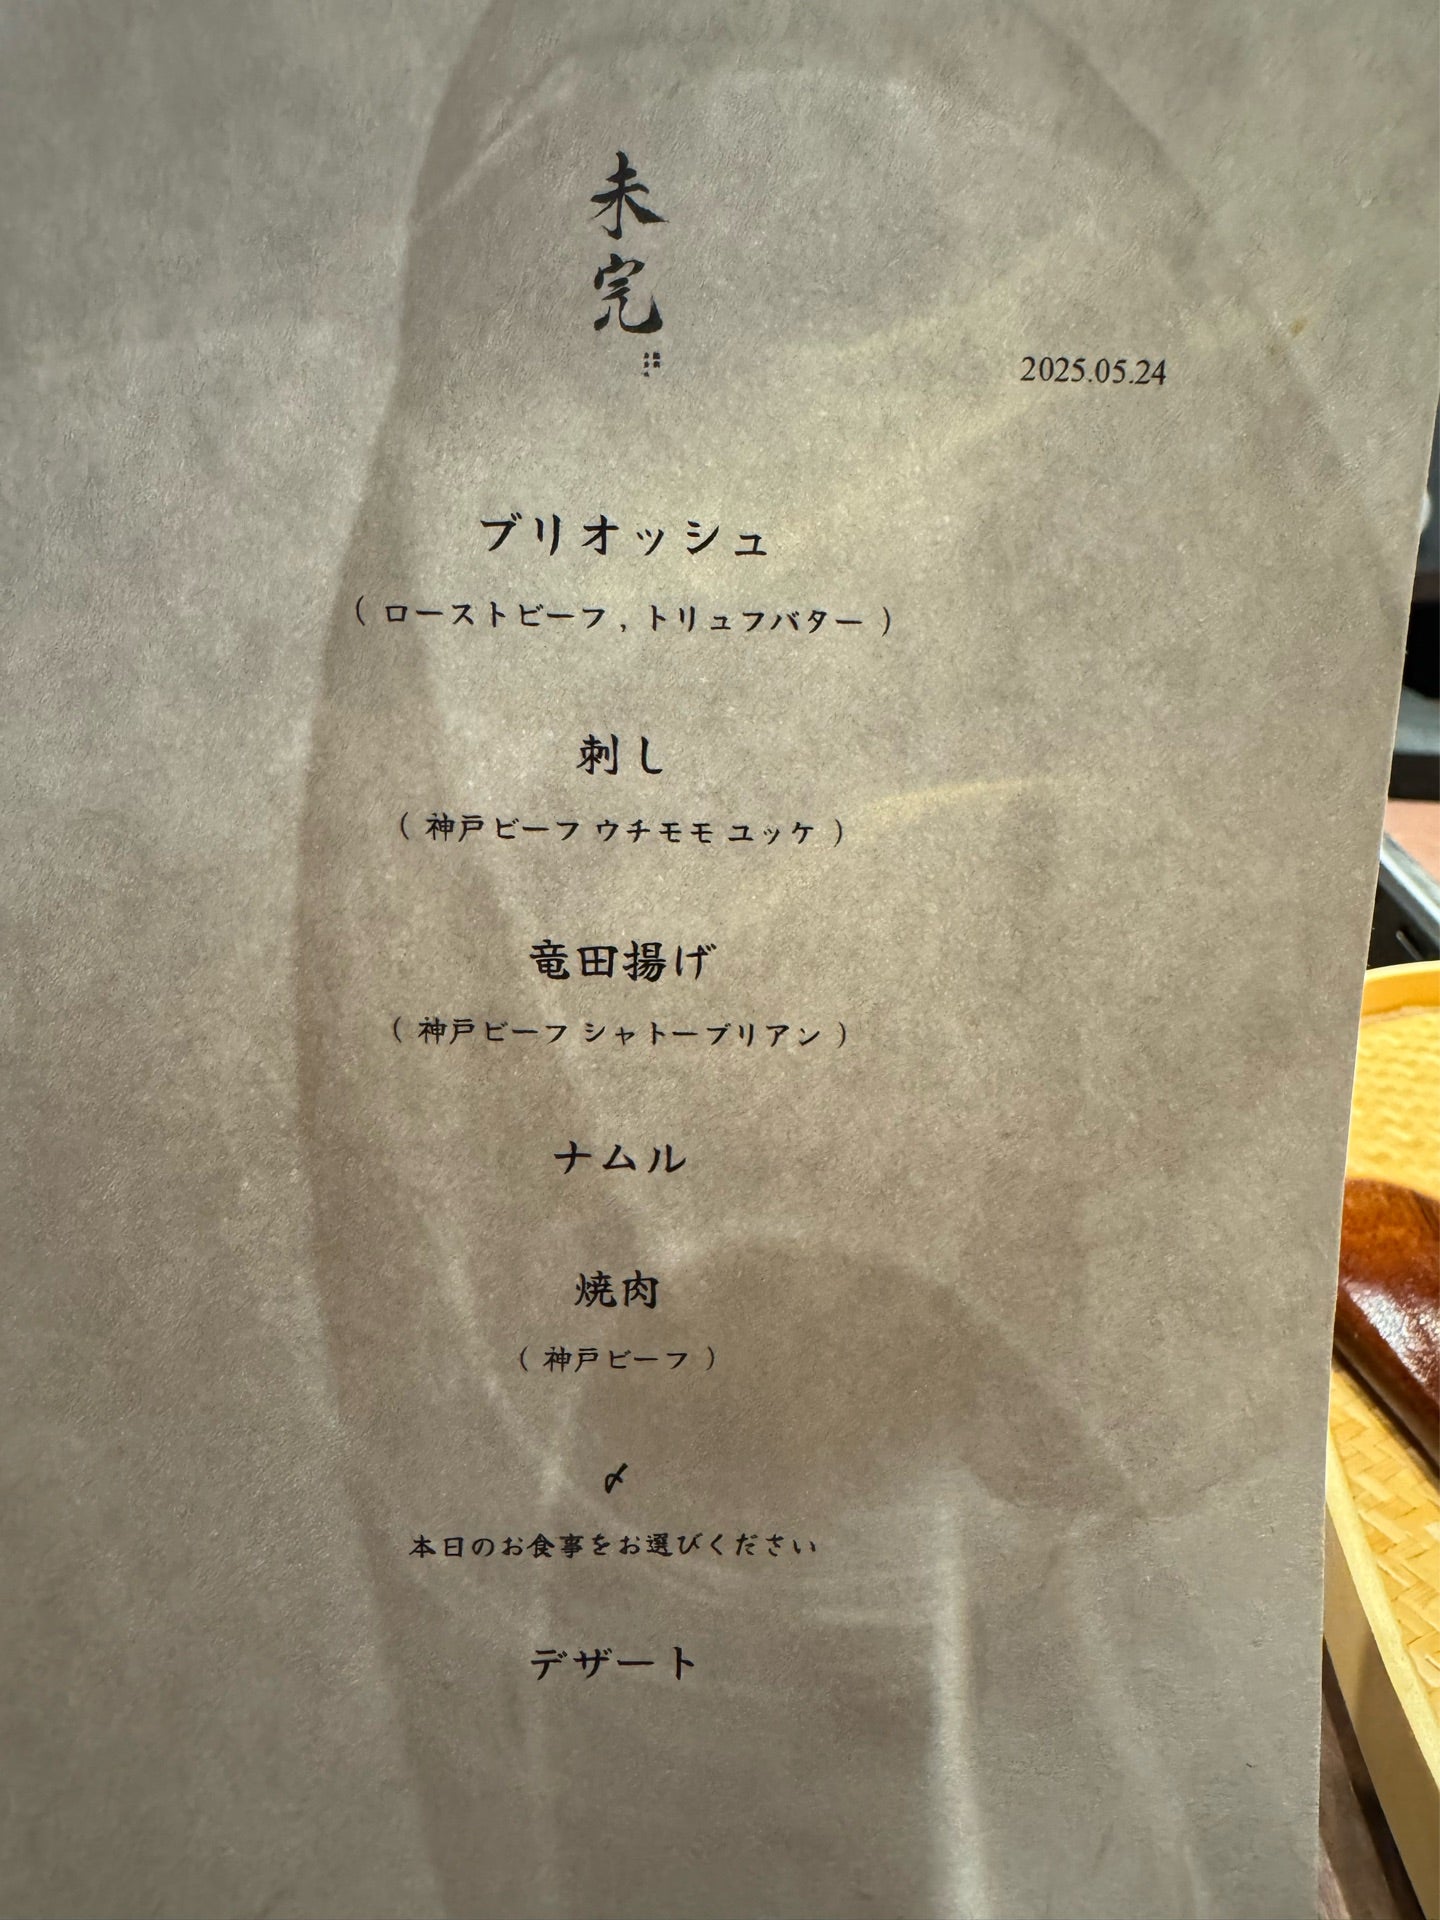 未完
2025.05.24
ブリオッシュ
( ローストビーフ , トリュフバター )
刺し
( 神戸ビーフ ウチモモ ユッケ )
竜田揚げ
( 神戸ビーフ シャトーブリアン )
ナムル
焼肉
( 神戸ビーフ )
〆
本日のお食事をお選びください
デザート